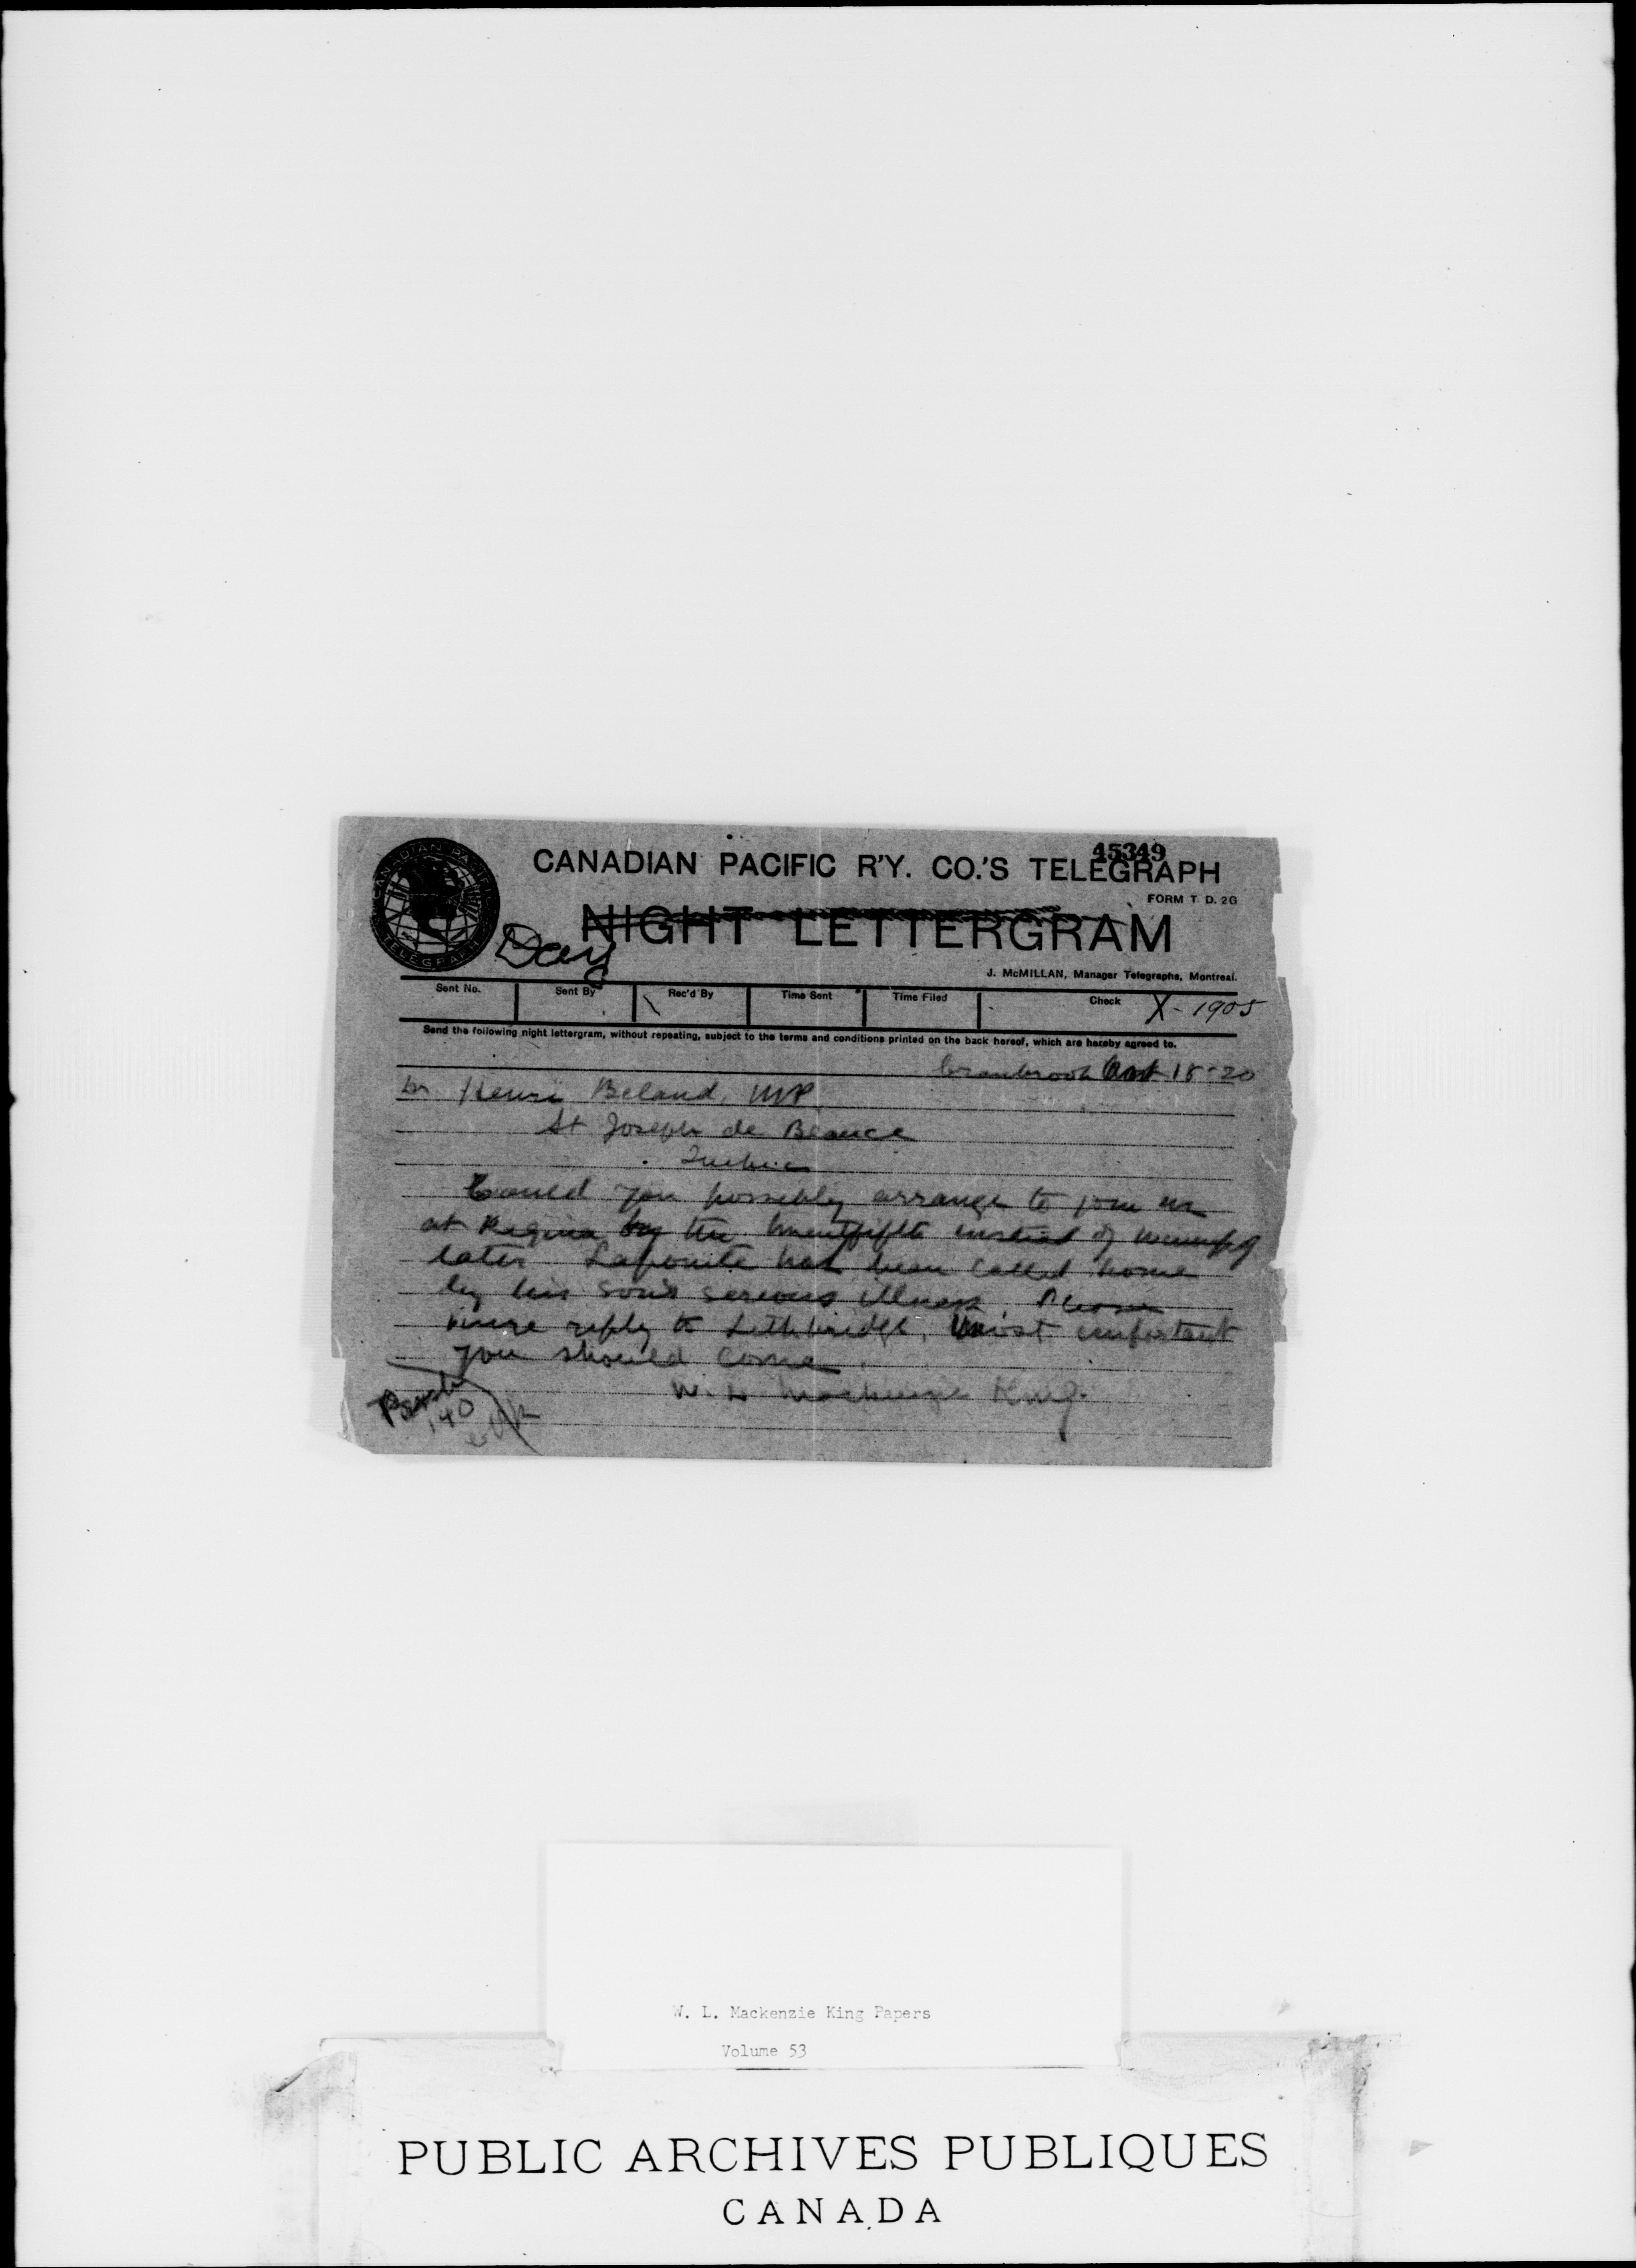 45349
CANADIAN PACIFIC R'Y. CO.'S TELEGRAPH
FORM T. D. 2G
Day NIGHT LETTERGRAM
J. McMILLAN, Manager Telegraphs, Montreal.
Sent No. Sent By Rec'd By Time Sent Time Filed Check X-1905
Send the following night lettergram, without repeating, subject to the terms and conditions printed on the back hereof, which are hereby agreed to.
Cranbrook Oct 18-20
Dr Henri Beland, MP.
St Joseph de Beauce
Quebec
Could you possibly arrange to join us
at Regina by the twentyfifth instead of Winnipeg
later Lapointe has been called home
by his son's serious illness. Please
wire reply to Lethbridge. Most important
you should come.
W. L Mackenzie King.
140
CANADIAN PACIFIC
TELEGRAPH
W. L. Mackenzie King Papers
Volume 53
PUBLIC ARCHIVES PUBLIQUES
CANADA